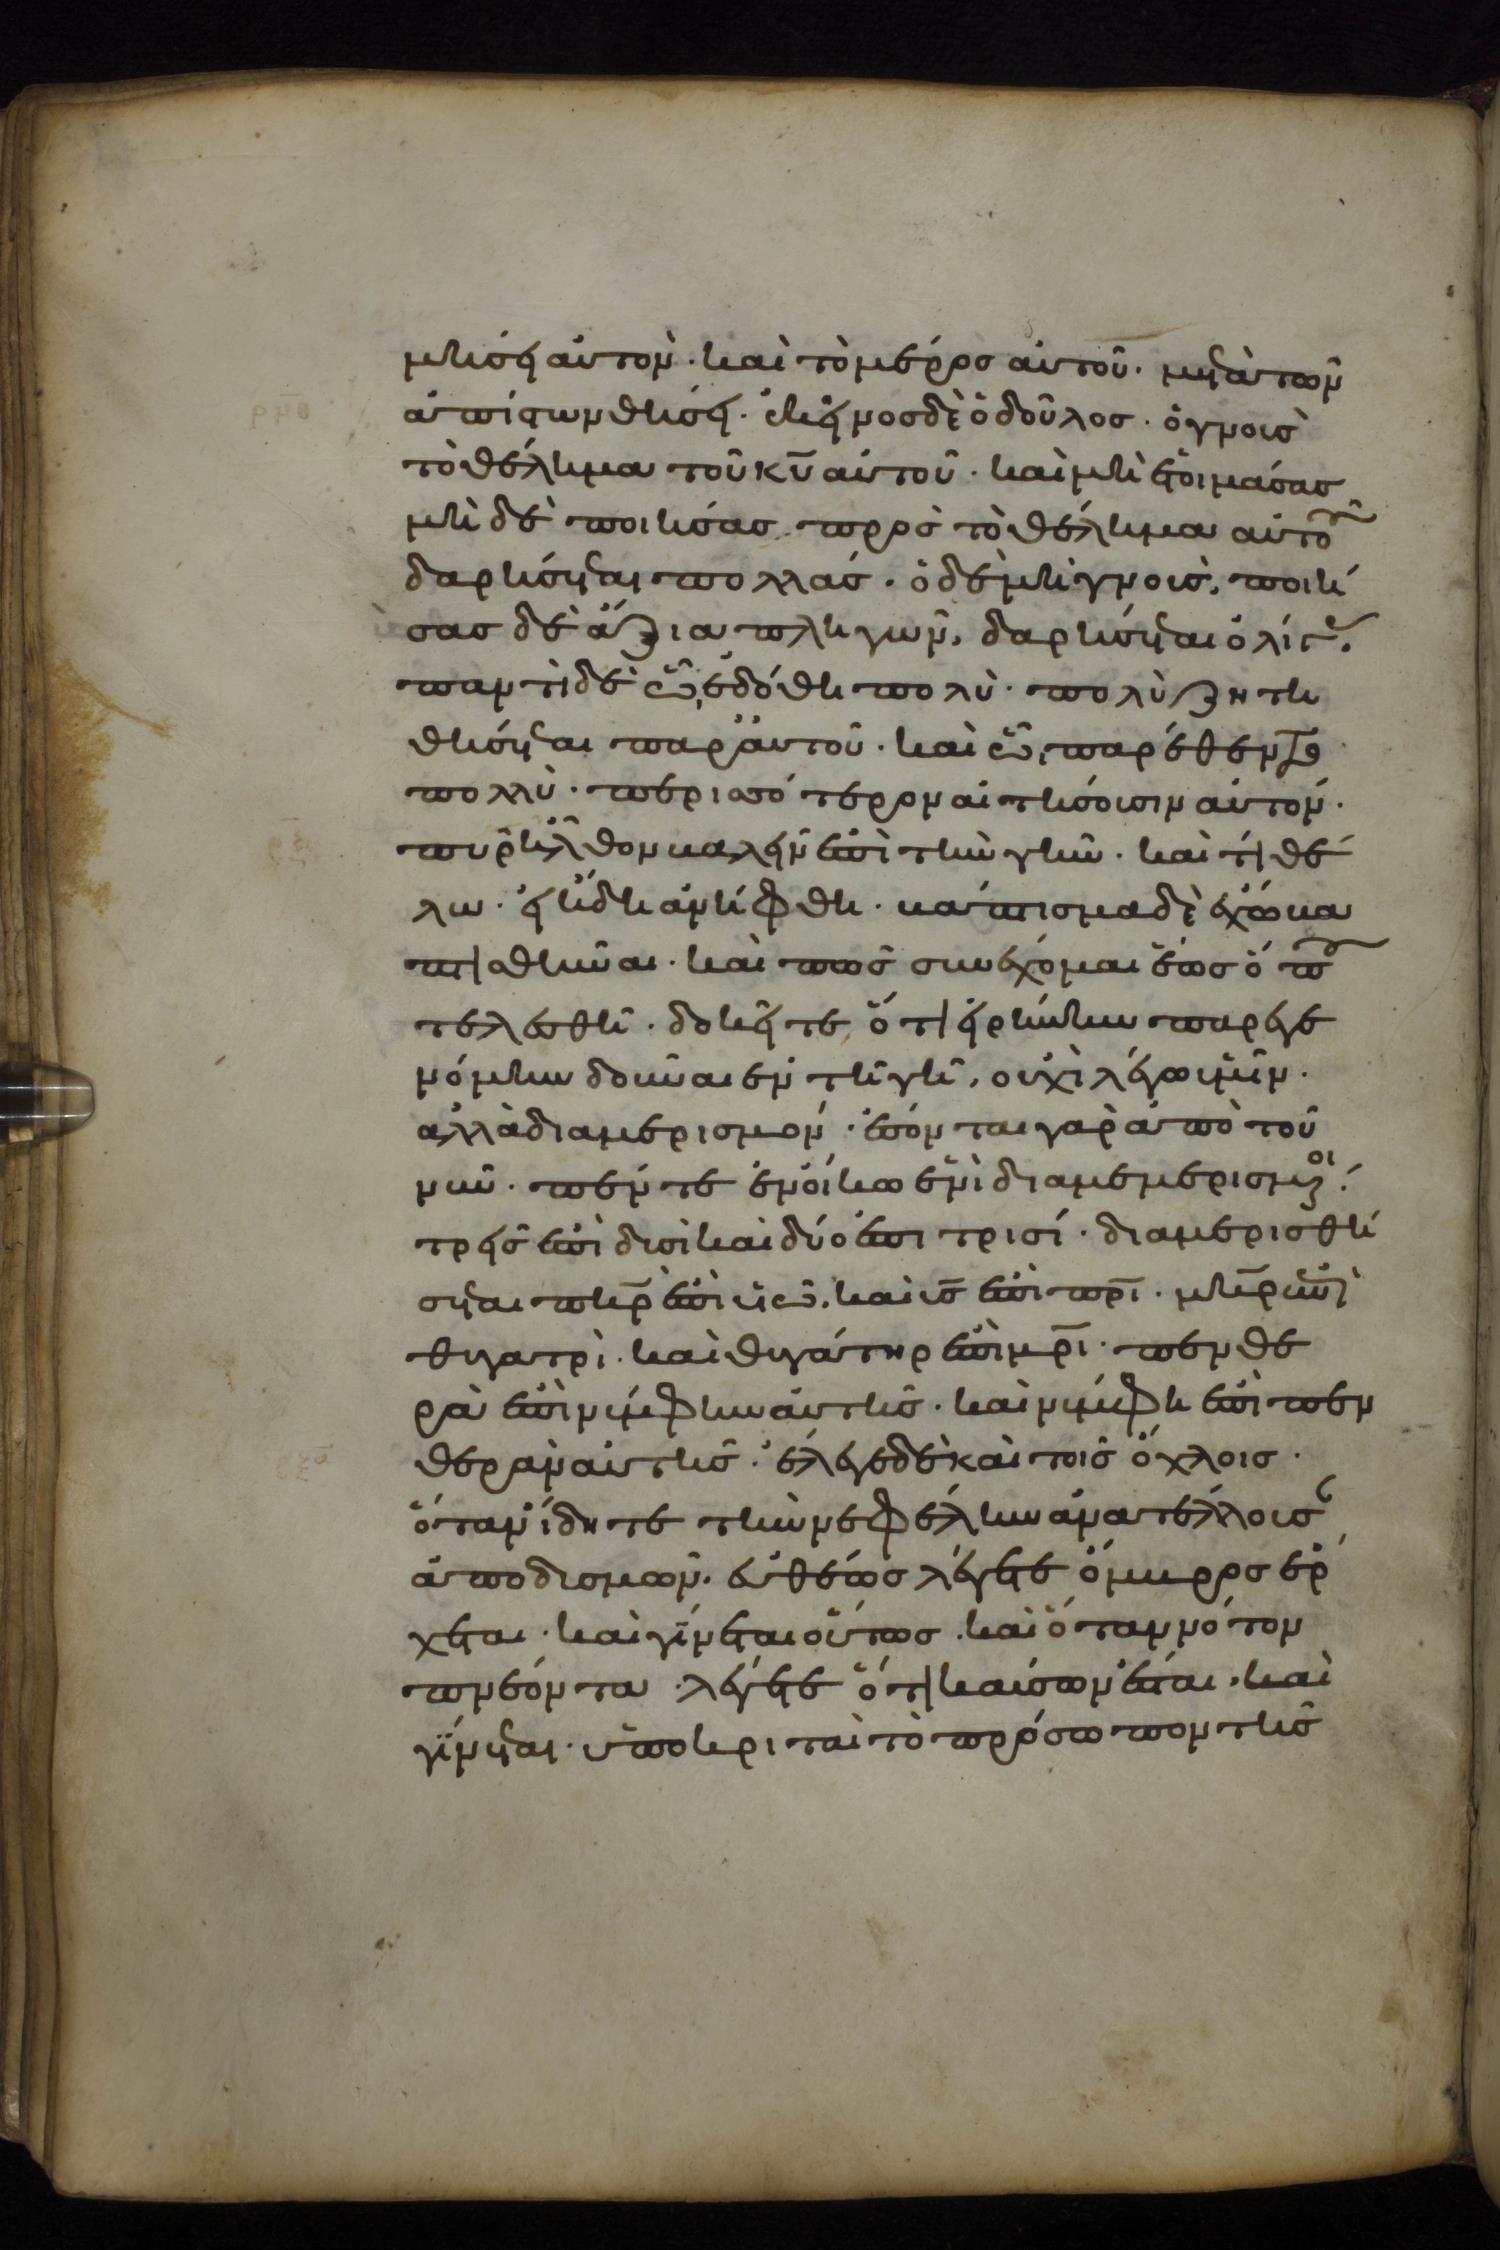 μήσει αὐτὸν· καὶ τὸ μέρος αὐτοῦ· μετὰ τῶν
ἀπίστων θήσει· ἐκεῖνος δὲ ὁ δοῦλος· ὁ γνοὺς
τὸ θέλημα τοῦ κ̅υ̅ αὐτοῦ· καὶ μὴ ἑτοιμάσας
μὴ δὲ ποιήσας πρὸς τὸ θέλημα αὐτοῦ
δαρήσεται πολλάς· ὁ δὲ μὴ γνοὺς, ποιή
σας δὲ ἄξια πληγῶν, δαρήσεται ὀλίγας.
παντὶ δὲ ᾧ ἐδόθη πολὺ· πολὺ ζητη
θήσεται παρ' αὐτοῦ· καὶ ᾧ παρέθεντο
πολλὺ· περισσότερον αἰτήσουσιν αὐτόν·
πῦρ ἦλθον βαλεῖν ἐπὶ τὴν γῆν· καὶ τί θέ
λω· εἰ ἤδη ἀνήφθη· βάπτισμα δὲ ἔχω βα
πτισθῆναι· καὶ πῶς συνέχομαι ἕως ὅτου
τελεσθῆ· δοκεῖτε ὅτι εἰρήνην παρεγε
νόμην δοῦναι ἐν τῆ γῆ, οὐχὶ λέγω ὑμῖν·
ἀλλὰ διαμερισμόν· ἔσονται γὰρ ἀπὸ τοῦ
νῦν· πέντε ἐν οἴκω ἑνὶ διαμεμερισμένοι·
τρεῖς ἐπὶ δυσὶ καὶ δύο ἐπι τρισί· διαμερισθή
σεται π̅η̅ρ̅ ἐπὶ υἱῶ, καὶ υ̅ς̅ ἐπὶ π̅ρ̅ι̅· μ̅η̅ρ̅ ἐπὶ
θυγατρὶ· καὶ θυγάτηρ ἐπὶ μ̅ρ̅ι̅· πενθε
ρὰ ἐπὶ νύμφην αὐτῆς· καὶ νύμφη ἐπὶ πεν
θερὰν αὐτῆς· ἔλεγε δὲ καὶ τοῖς ὄχλοις·
ὅταν ἴδητε τὴν νεφέλην ἀνατέλλουσαν
ἀπὸ δυσμῶν· εὐθέως λέγετε ὄμβρος ἔρ
χεται· καὶ γίνεται οὕτως· καὶ ὅταν νότον
πνέοντα λέγετε ὅτι καύσων ἔσται· καὶ
γίνεται· ὑποκριταὶ τὸ πρόσωπον τῆς